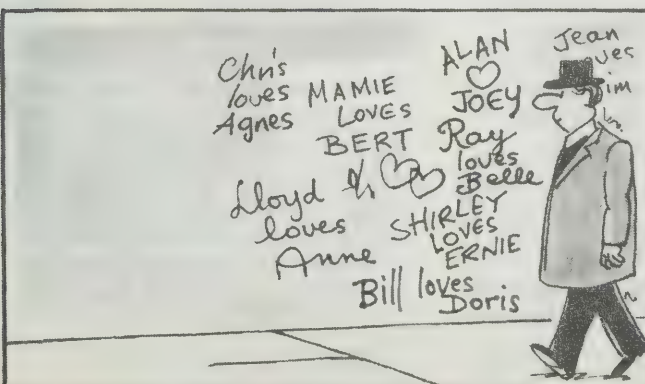 Chris
loves
Agnes
MAMIE
LOVES
BERT
ALAN
JOEY
Ray
loves
Belle
Lloyd
loves
Anne
SHIRLEY
LOVES
ERNIE
Bill loves
Doris
Jean
ves
im